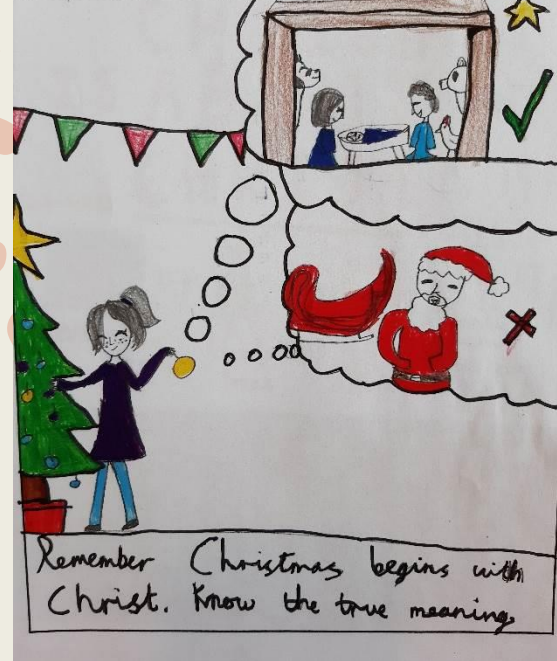 Remember Christmas begins with
Christ. Know the true meaning.